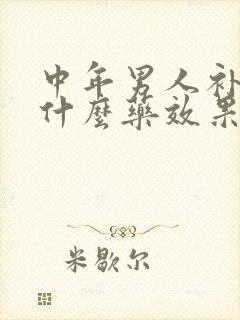 中年男人补
什麼藥效果
米歇尔